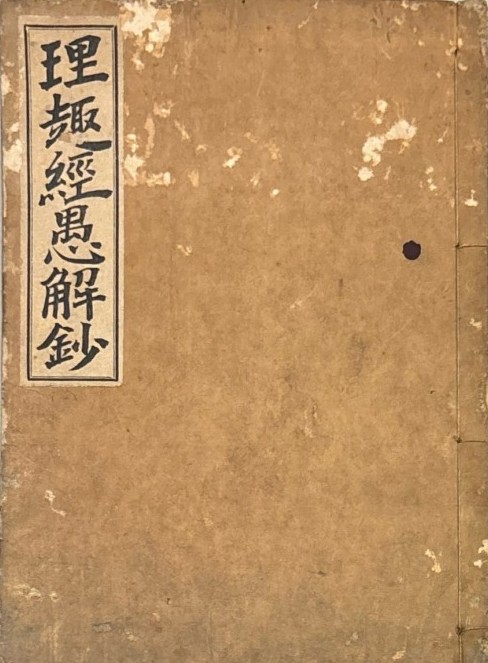 理趣經愚解鈔